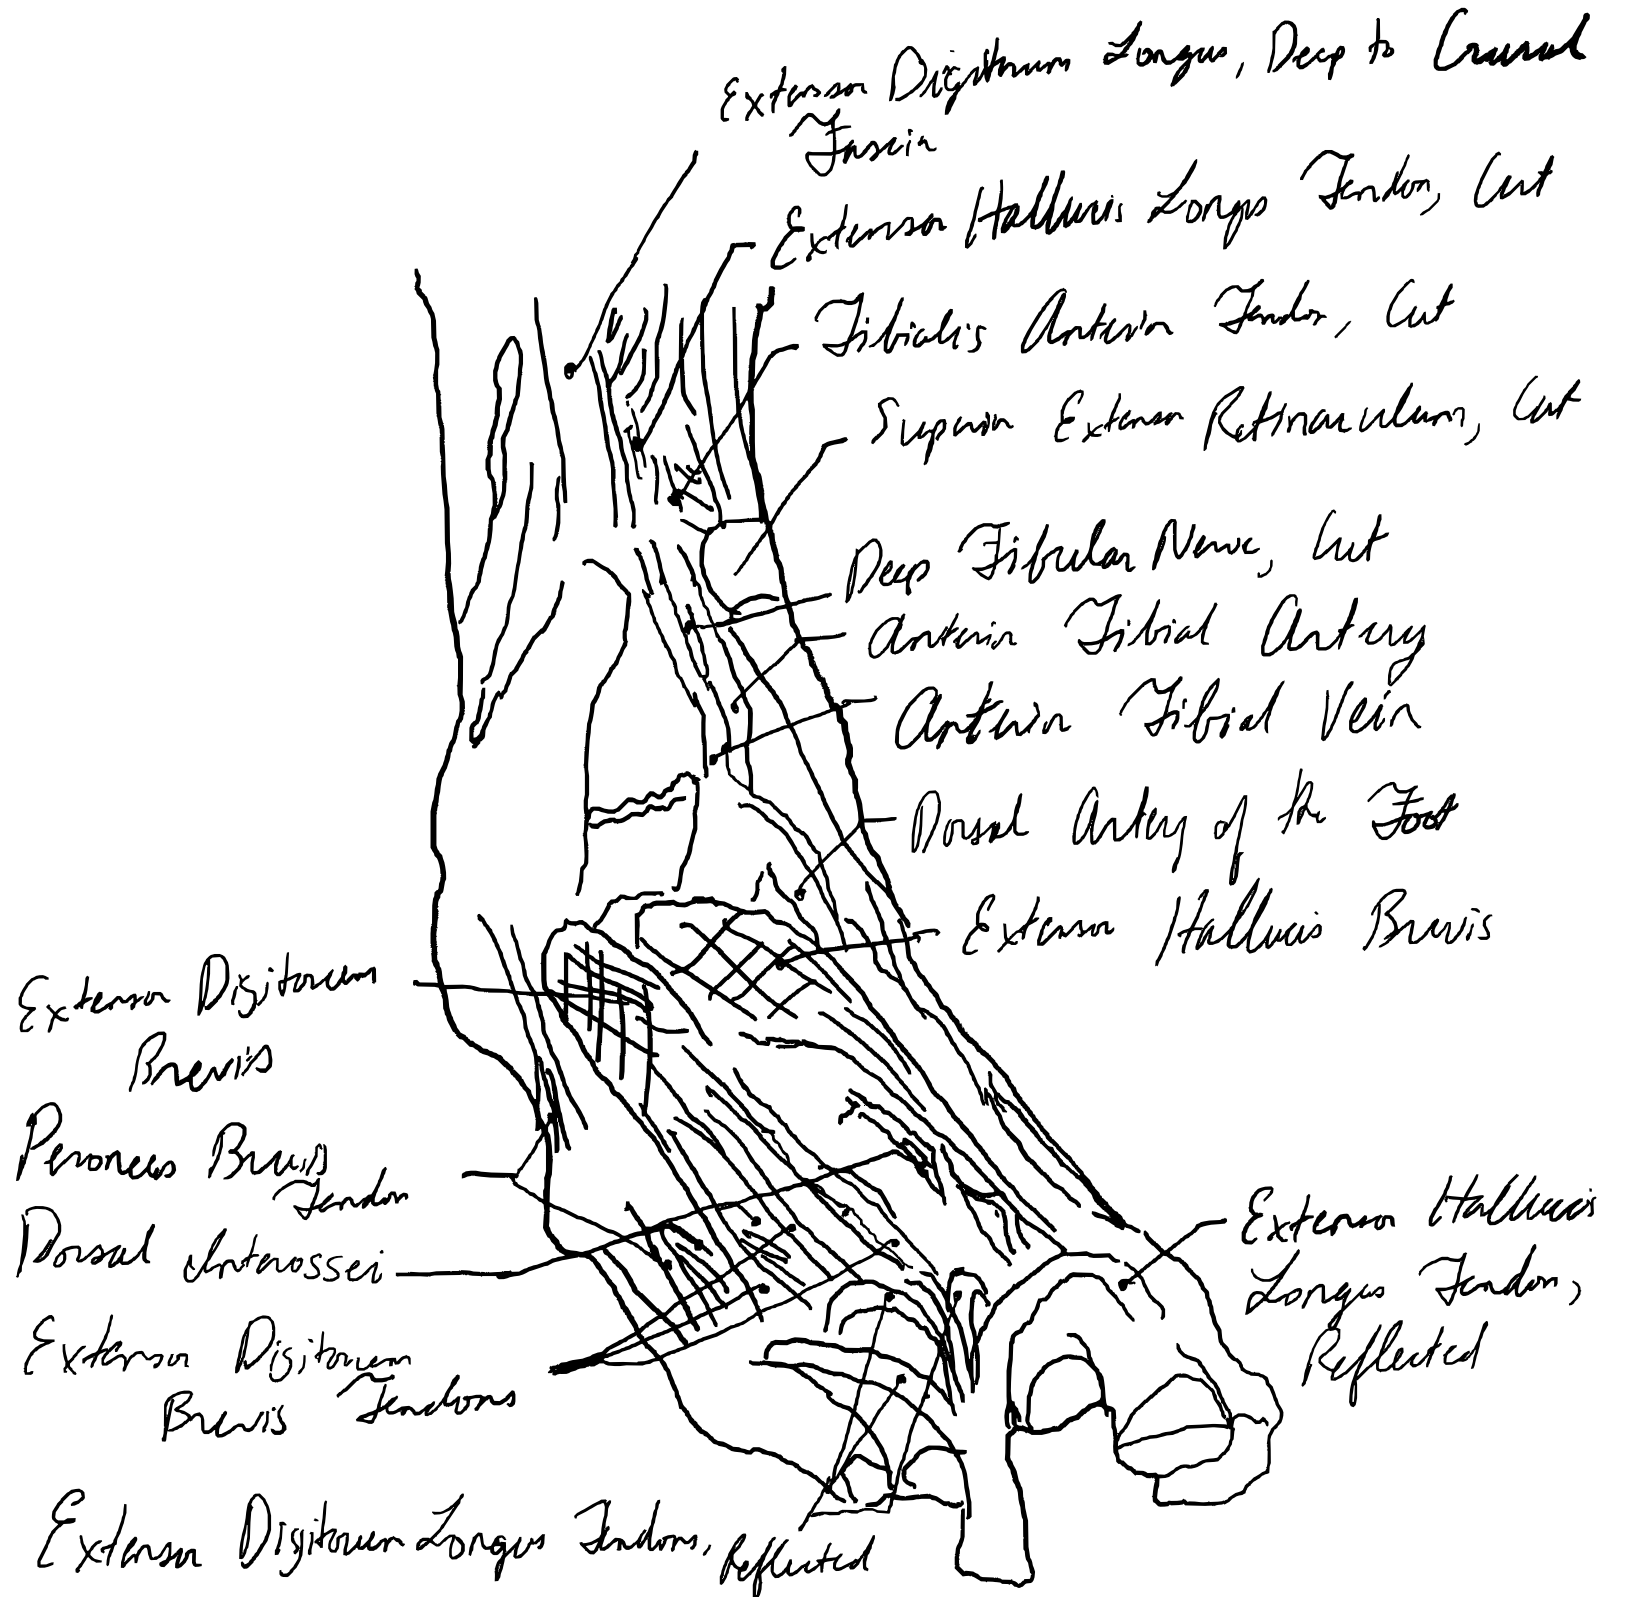 Extensor Digitorum Longus, Deep to Crural
Fascia
Extensor Hallucis Longus Tendon, Cut
Tibialis Anterior Tendon, Cut
Superior Extensor Retinaculum, Cut
Deep Fibular Nerve, Cut
Anterior Tibial Artery
Anterior Tibial Vein
Dorsal Artery of the Foot
Extensor Hallucis Brevis
Extensor Digitorum
Brevis
Peroneus Brevis
Tendon
Dorsal Interossei
Extensor Digitorum
Brevis Tendons
Extensor Digitorum Longus Tendons, Reflected
Extensor Hallucis
Longus Tendon,
Reflected